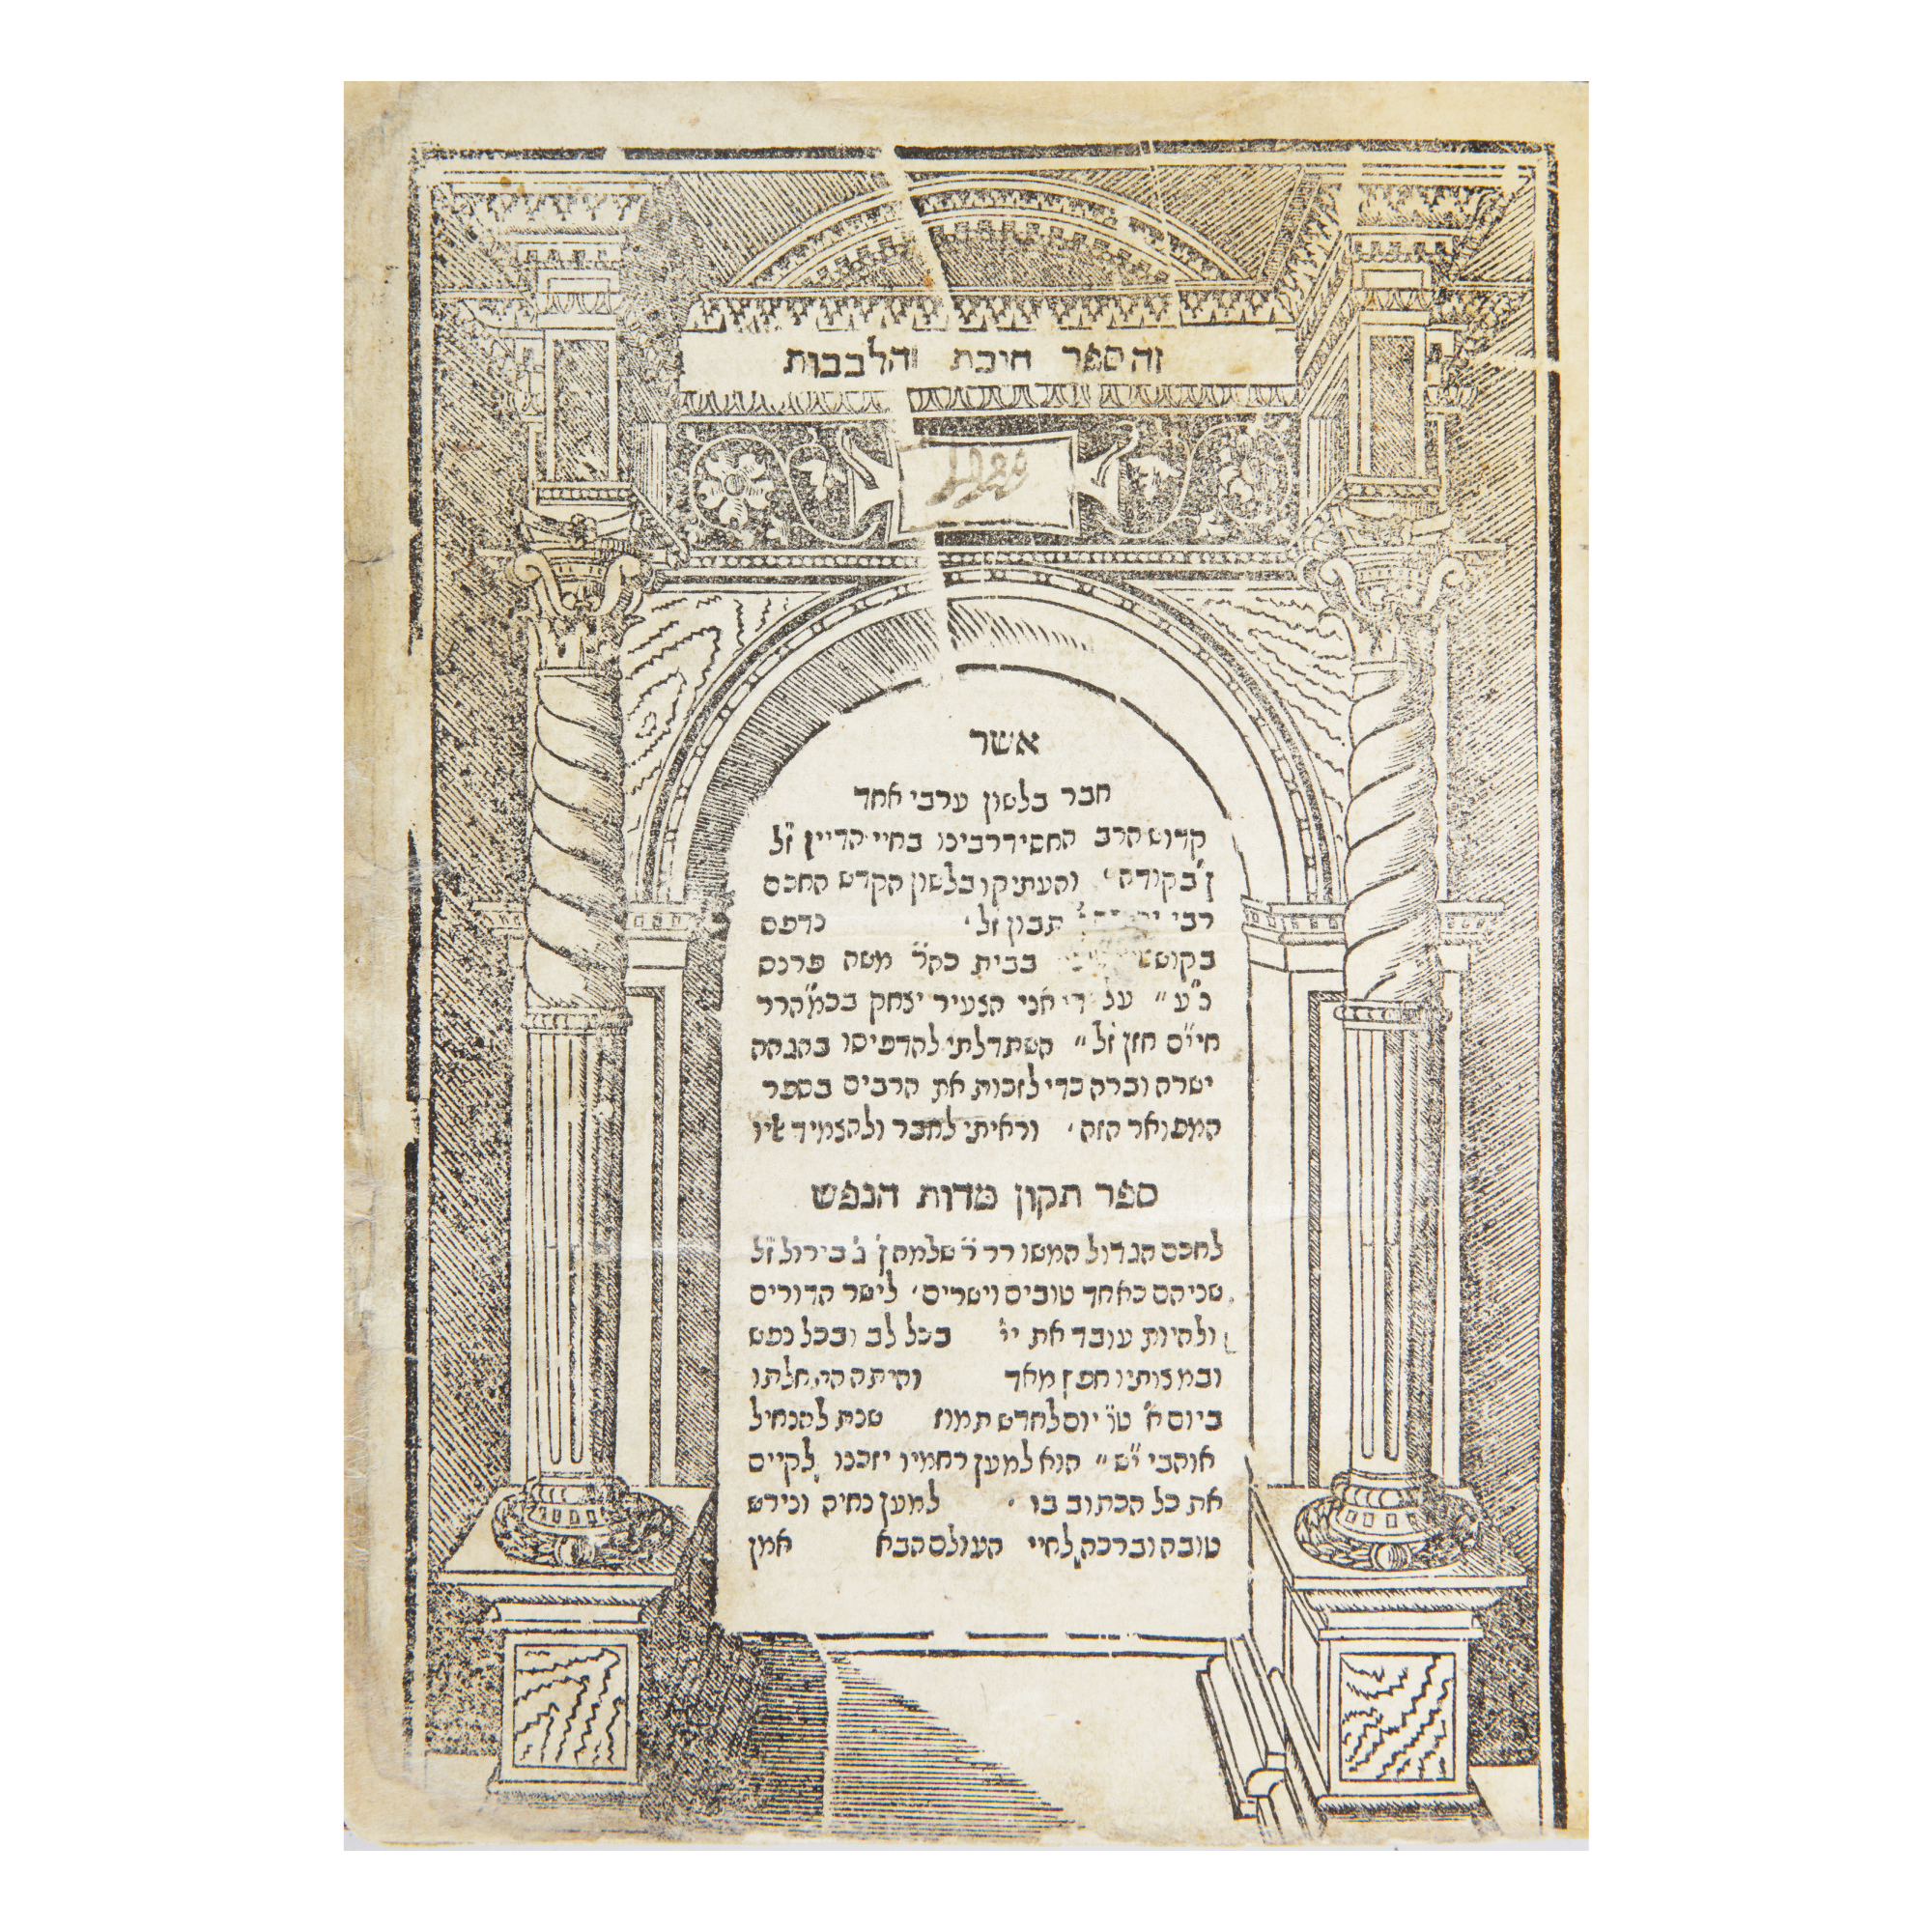 זה ספר חובת הלבבות
אשר
חבר בלשון ערבי אחד
קדוש הרב החסיד רבינו בחיי הדיין ז"ל
ן' בקודה' והעתיקו בלשון הקדש החכם
רבי תבון ז"ל' נדפס
בבית כה"ר משה פרנס
נ"ע" על ידי אני הצעיר יצחק בכמ"הרר
חיי"ם חזן ז"ל" השתדלתי להדפיסו בהגהה
ישרה וברה כדי לזכות את הרבים בספר
המפואר הזה' וראיתי לחבר ולהצמיד אליו
ספר תקון מדות הנפש
לחכם הגדול המשורר ר' שלמה ן' גבירול ז"ל
שניהם כאחד טובים וישרים' ליישר הדורים
ולהיות עובד את יי' בכל לב ובכל נפש
ובמצותיו חפץ מאד והיתה התחלתו
ביום א' ט"ו יום לחדש תמוז שנת להנחיל
אוהבי י"ש" הוא למען רחמיו יזכנו לקיים
את כל הכתוב בו' למען נחיה ונירש
טובה וברכה לחיי העולם הבא אמן